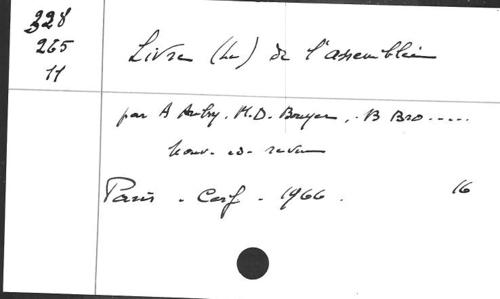 328
265
11
Livre (Le) de l'assemblée
par A Aubry, M.D. Bouyer, . B Bro.....
Nouv. ed. revue
Paris - Cerf - 1966 . 16